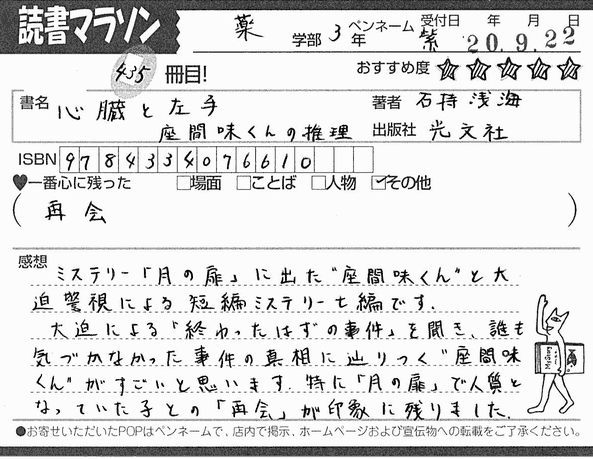 読書マラソン
薬 学部 3年 ペンネーム 紫 受付日 年 月 日
20.9.22
435 冊目! おすすめ度 ☆☆☆☆☆
書名 心臓と左手 著者 石持浅海
座間味くんの推理 出版社 光文社
ISBN 9784334076610
♥一番心に残った □場面 □ことば □人物 ☑その他
( 再会 )
感想
ミステリー「月の扉」に出た"座間味くん"と大
迫警視による短編ミステリー七編です.
大迫による「終わったはずの事件」を聞き、誰も
気づかなかった事件の真相に辿りつく"座間味
くん"がすごいと思います.特に「月の扉」で人質と
なっていた子との「再会」が印象に残りました.
●お寄せいただいたPOPはペンネームで、店内で掲示、ホームページおよび宣伝物への転載をご了承ください。